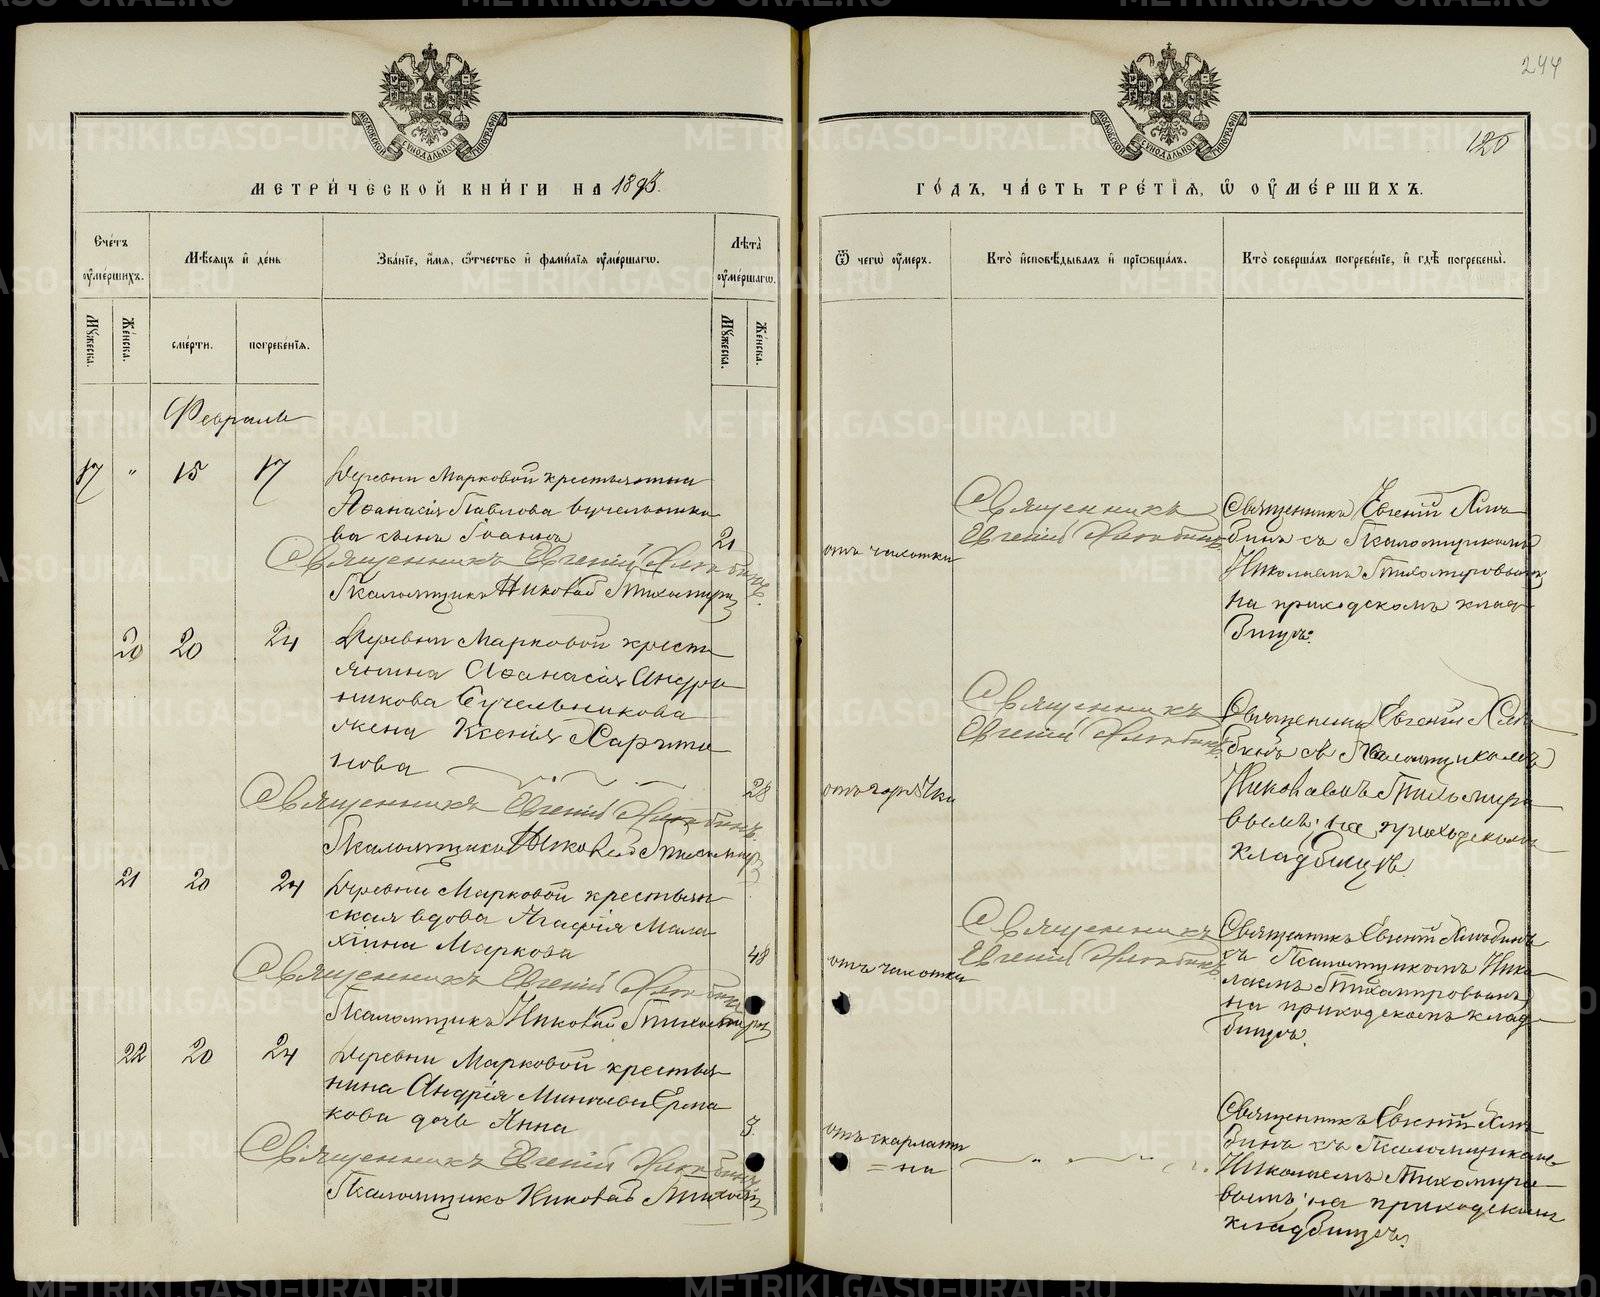 244
120
МЕТРИЧЕСКОЙ КНИГИ НА 1895
ГОДЪ, ЧАСТЬ ТРЕТІЯ, Ѿ ОУМЕРШИХЪ.
МОСКОВСКОЙ СѴНОДАЛЬНОЙ ТИПОГРАФІИ
МОСКОВСКОЙ СѴНОДАЛЬНОЙ ТИПОГРАФІИ
Счетъ оумершихъ.
Мѣсяцъ и день
Званіе, имя, отчество и фамилія оумершагѡ.
Лѣта оумершагѡ.
Мужеска.
Женска.
смерти.
погребенія.
Мужеска.
Женска.
Ѿ чегѡ оумеръ.
Кто исповѣдывалъ и пріѡбщалъ.
Кто совершалъ погребеніе, и гдѣ погребены.
Февраль
17 " 15 17
Деревни Марковой крестьянина
Аѳанасія Павлова Сучельнико
ва сынъ Іоаннъ
21
Священникъ Евгеній Хлыбинъ.
Псаломщикъ Николай Тихомиров
отъ чахотки
Священникъ
Евгеній Хлыбинъ
Священникъ Евгеній Хлы
бинъ съ Псаломщикомъ
Николаемъ Тихомировымъ
на приходскомъ клад
бищѣ.
20 20 24
Деревни Марковой кресть
янина Аѳанасія Андро
никова Сучельникова
жена Ксенія Харито
нова
28
Священникъ Евгеній Хлыбинъ.
Псаломщикъ Николай Тихомиров
отъ горячки
Священникъ
Евгеній Хлыбинъ
Священникъ Евгеній Хлы
бинъ съ Псаломщикомъ
Николаемъ Тихомиро
вымъ, на приходскомъ
кладбищѣ.
21 20 24
Деревни Марковой крестьян
ская вдова Агафія Мала
хіина Маркова
48
Священникъ Евгеній Хлыбинъ
Псаломщикъ Николай Тихомиров
отъ чахотки
Священникъ
Евгеній Хлыбинъ
Священникъ Евгеній Хлыбинъ
съ Псаломщикомъ Нико
лаемъ Тихомировымъ
на приходскомъ клад
бищѣ.
22 20 24
Деревни Марковой крестья
нина Андрія Минѣева Ерма
кова дочь Анна
3.
Священникъ Евгеній Хлыбинъ
Псаломщикъ Николай Тихомиров
отъ скарлати
= на
Священникъ Евгеній Хлы
бинъ съ Псаломщикомъ
Николаемъ Тихомиро
вымъ, на приходскомъ
кладбищѣ.
METRIKI.GASO-URAL.RU